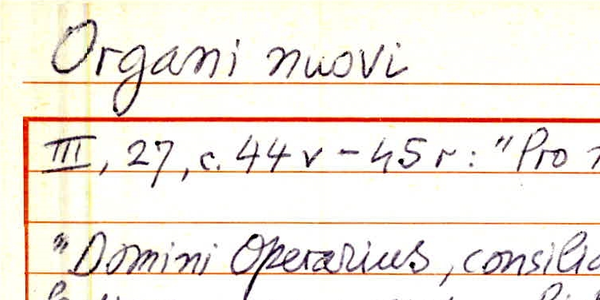 Organi nuovi
III, 27, c. 44v - 45r: "Pro
"Domini Operarius, consilia